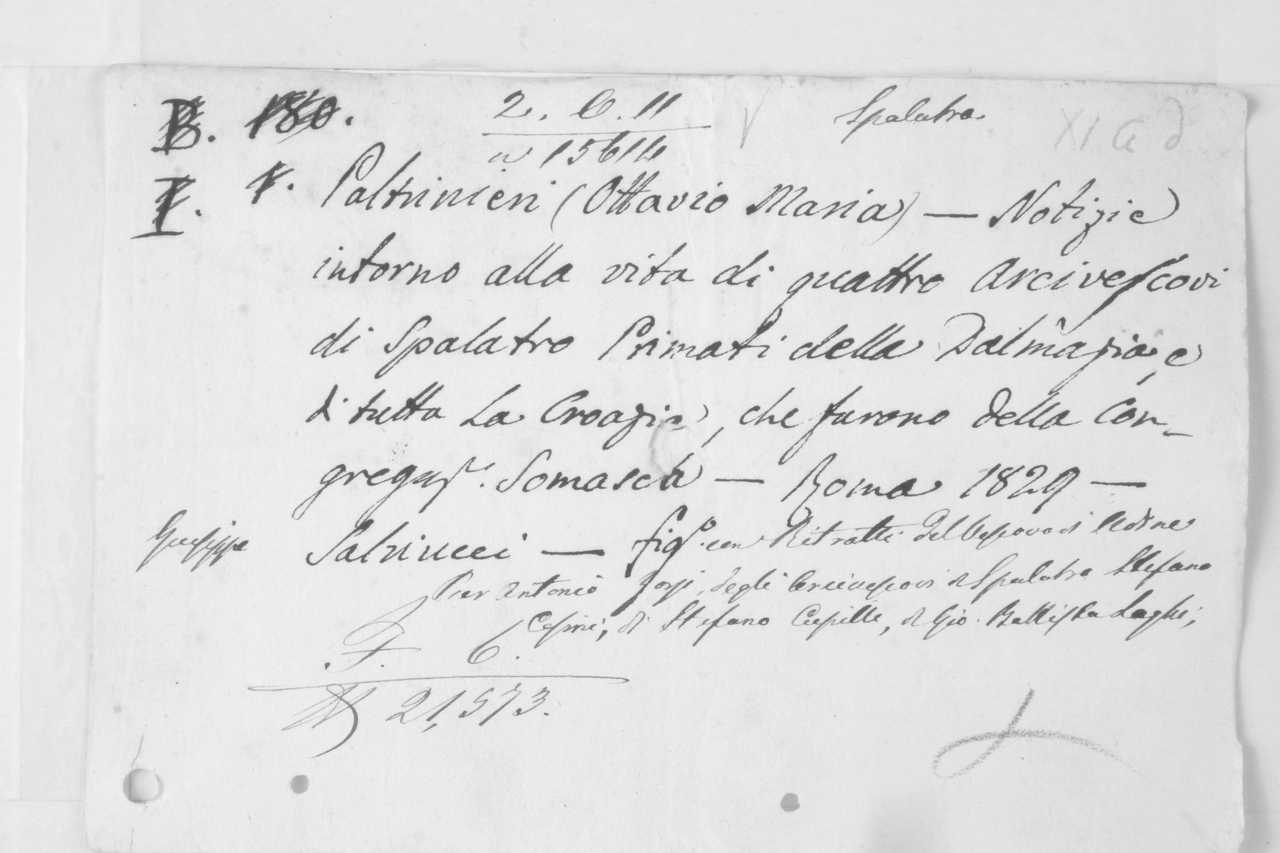 B. 180. 2. C. 11 Spalatro XI G d
n 15614
I. 1. Paltrinieri (Ottavio Maria) — Notizie
intorno alla vita di quattro Arcivescovi
di Spalatro Primati della Dalmazia, e
di tutta la Croazia, che furono della Con-
gregaz. Somasca — Roma 1829 —
Giuseppe Salviucci — fig.o con Ritratti del Vescovo di Udine
Pier Antonio Zorzi, degli Arcivescovi di Spalatro Stefano
Cosmi, di Stefano Cupilli, di Gio. Battista Laghi;
F. C.
N 21,573.